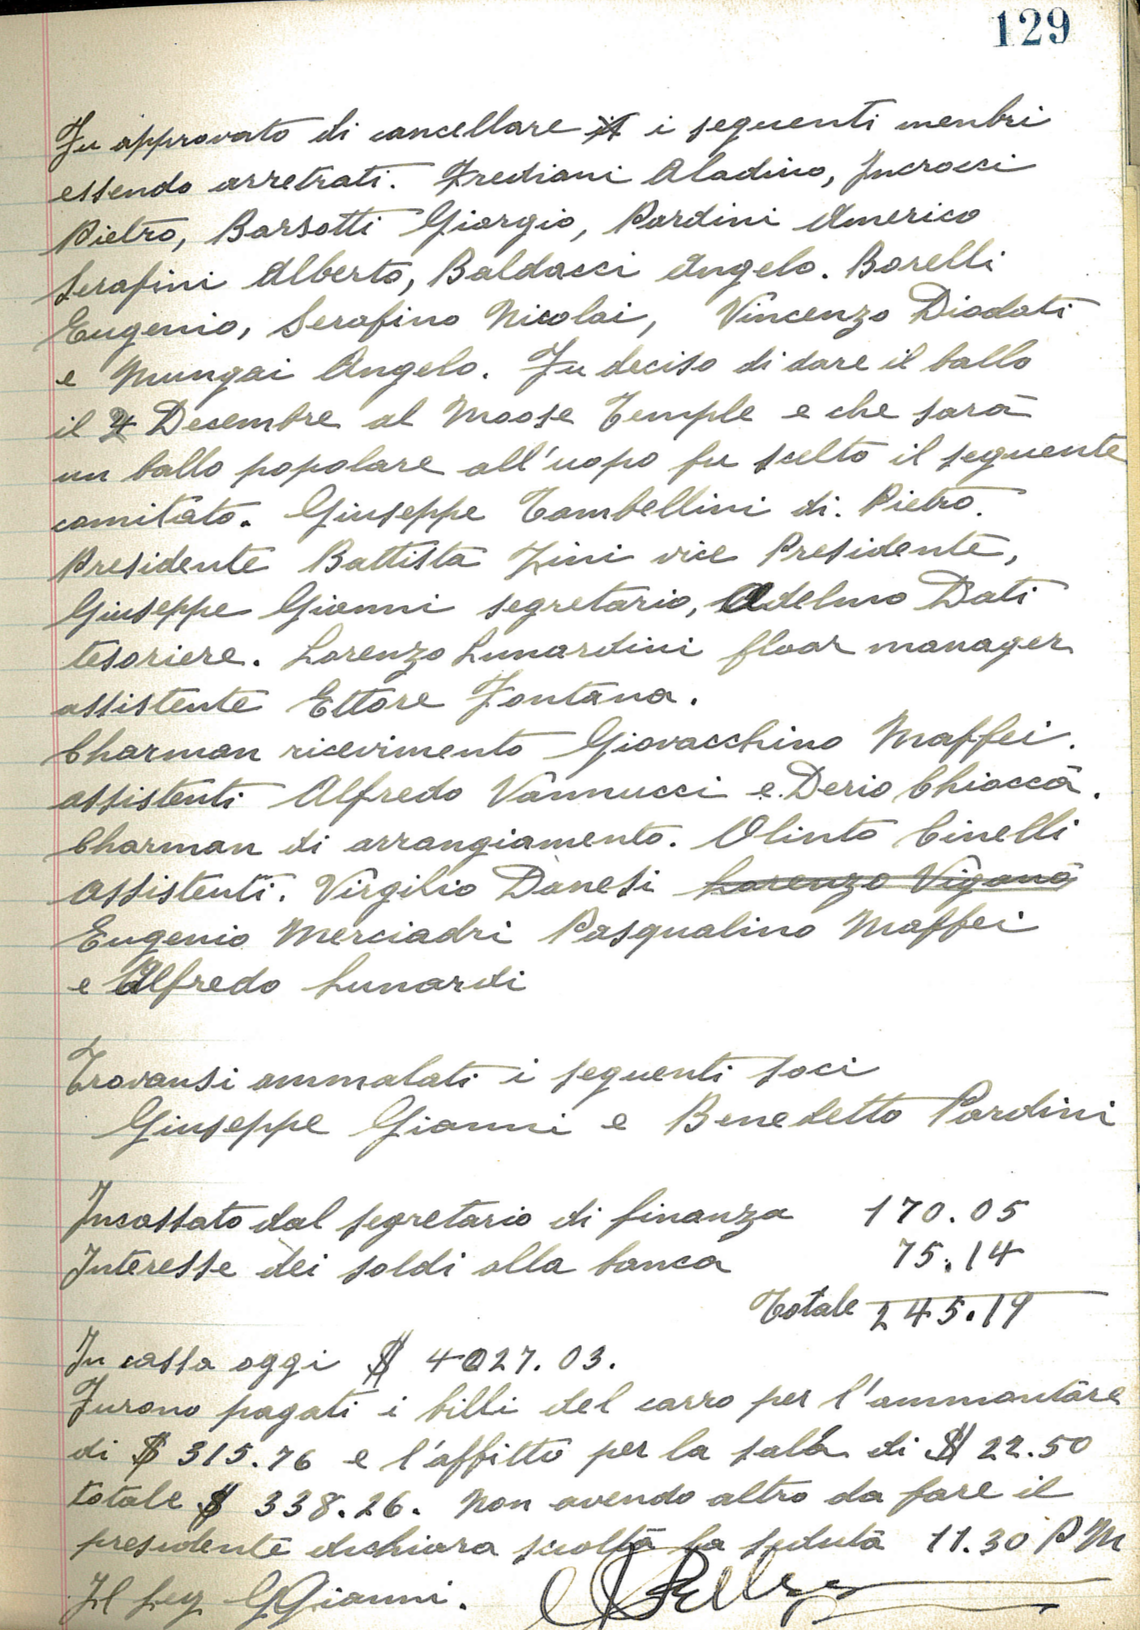 129
Fu approvato di cancellare i seguenti menbri
essendo arretrati. Frediani Aladino, Incrocci
Pietro, Barsotti Giorgio, Pardini Americo
Serafini Alberto, Baldacci Angelo. Borelli
Eugenio, Serafino Nicolai, Vincenzo Diodati
e Mungai Angelo. Fu deciso di dare il ballo
il 4 Decembre al Moose Temple e che sarà
un ballo popolare all'uopo fu scelto il seguente
comitato. Giuseppe Tambellini di. Pietro.
Presidente Battista Zini vice Presidente,
Giuseppe Gianni segretario, Adelmo Dati
tesoriere. Lorenzo Lunardini floar manager
assistente Ettore Fontana.
Charman ricevimento Giovacchino Maffei.
assistenti Alfredo Vannucci e Derio Chiocca.
Charman di arrangiamento. Olinto Cinelli
assistenti. Virgilio Danesi Lorenzo Viganò
Eugenio Merciadri Pasqualino Maffei
e Alfredo Lunardi
Trovansi ammalati i seguenti soci
Giuseppe Gianni e Benedetto Pardini
Incassato dal segretario di finanza 170.05
Interesse dei soldi alla banca 75.14
Totale 245.19
In cassa oggi $ 4027.03.
Furono pagati i billi del carro per l'ammontare
di $ 315.76 e l'affitto per la sala di $ 22.50
totale $ 338.26. Non avendo altro da fare il
presidente dichiara sciolta la seduta 11.30 P M
Il seg G Gianni.